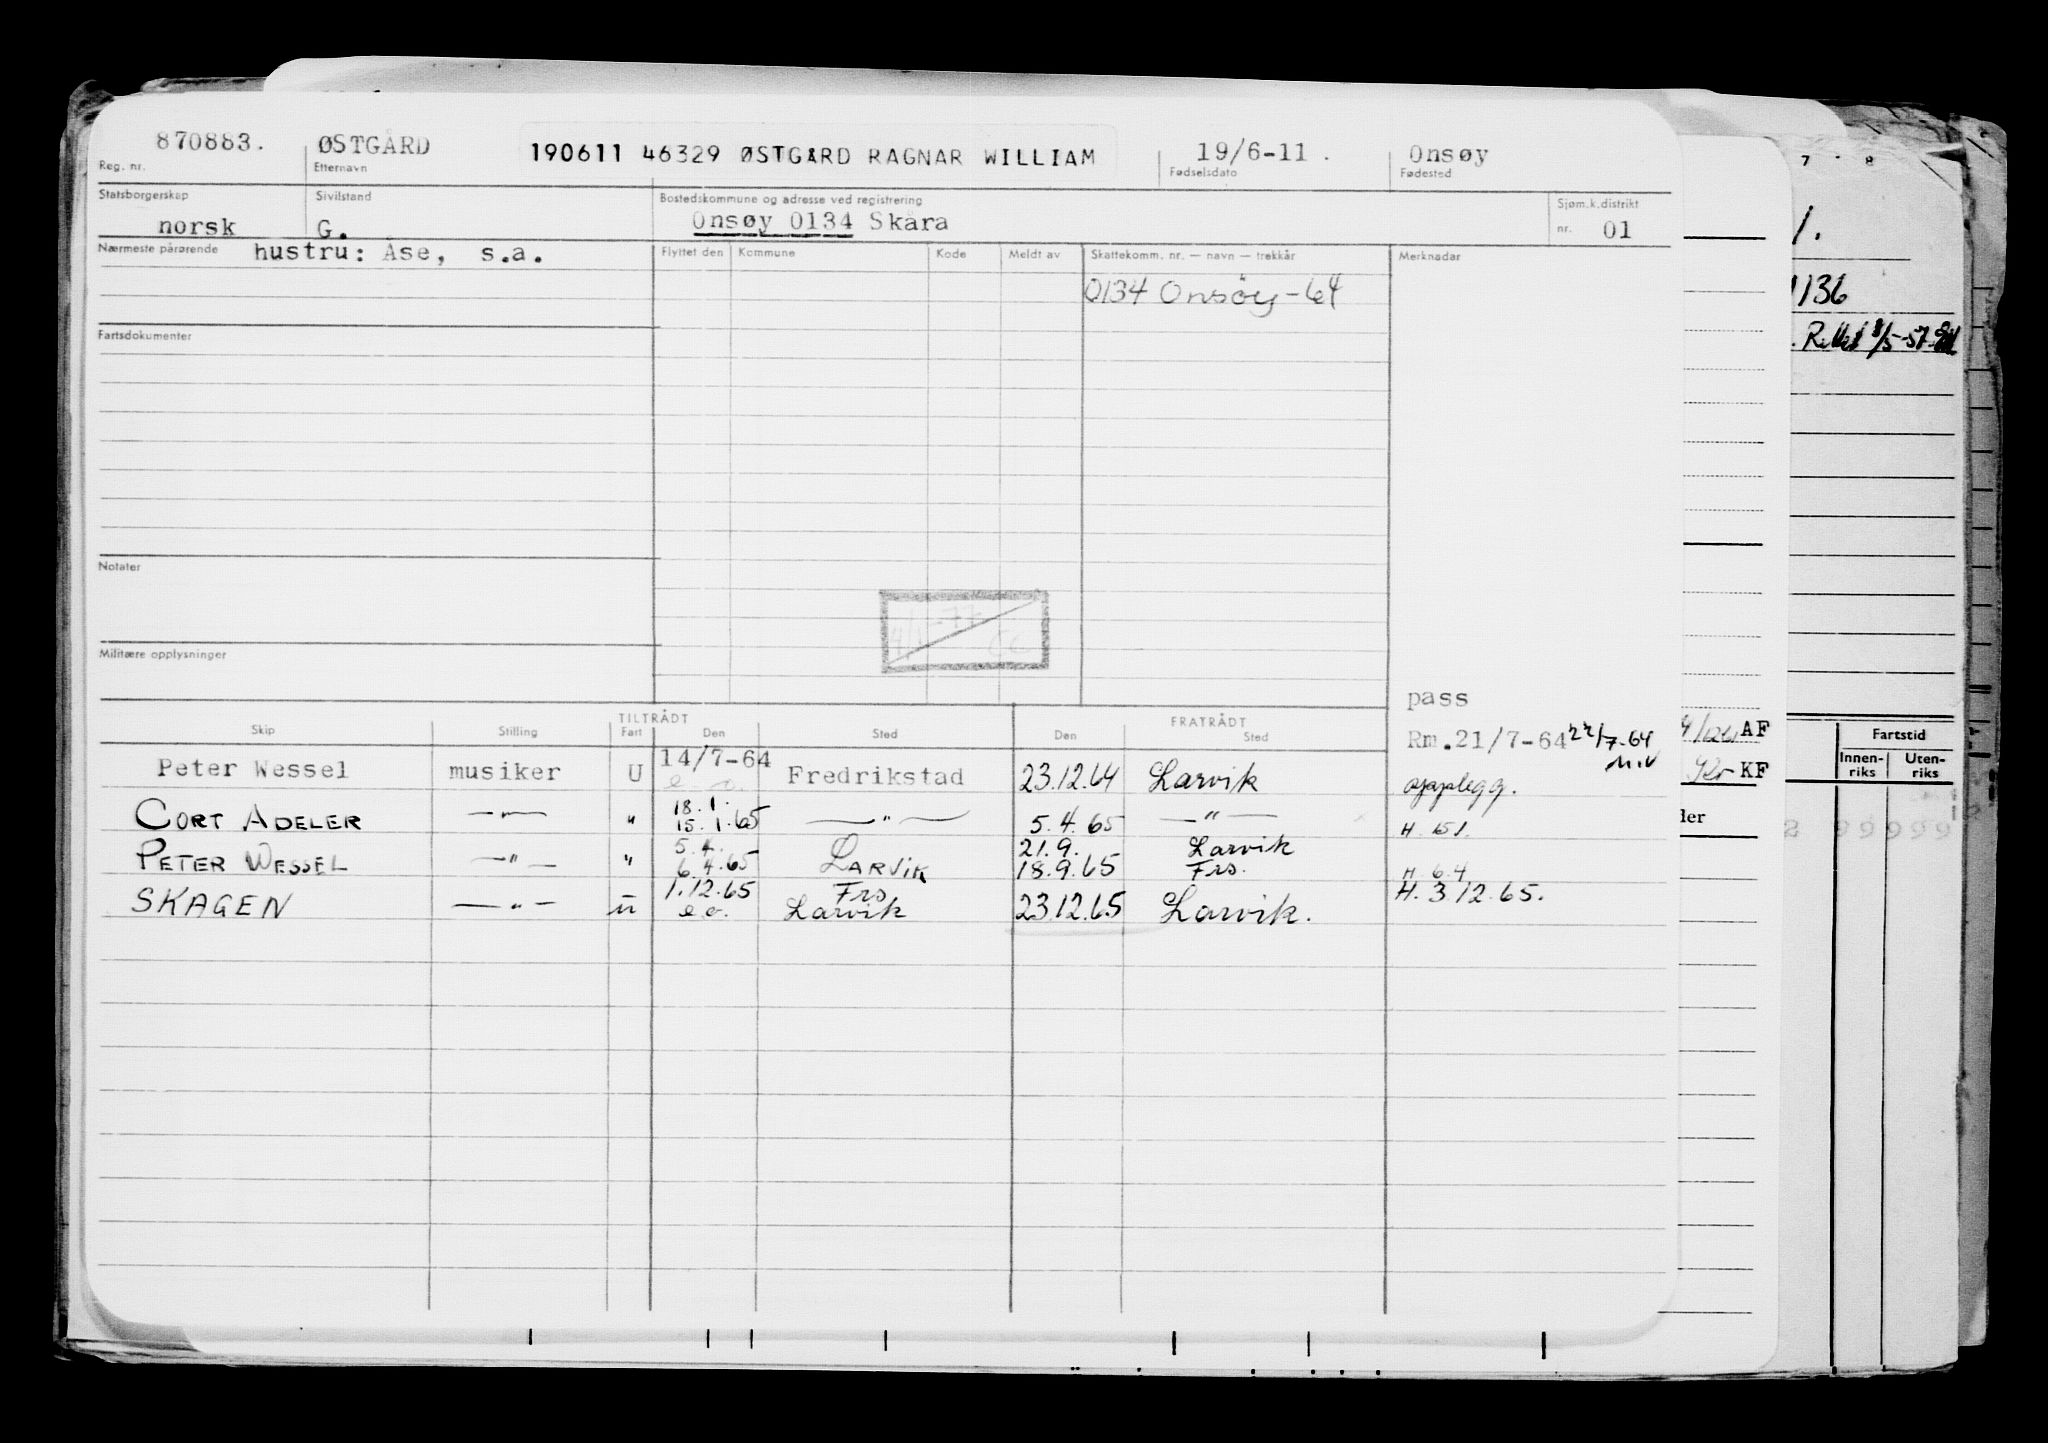 870883. ØSTGÅRD 190611 46329 ØSTGÅRD RAGNAR WILLIAM 19/6-11. Onsøy
Reg. nr. Etternavn Fødselsdato Fødested
Statsborgerskap Sivilstand Bostedskommune og adresse ved registrering Sjøm.k.distrikt
norsk G. Onsøy 0134 Skåra nr. 01
Nærmeste pårørende hustru: Åse, s.a. Flyttet den Kommune Kode Meldt av Skattekomm. nr. — navn — trekkår Merknader
0134 Onsøy-64
Fartsdokumenter
Notater
Militære opplysninger
pass
Rm.21/7-64 22/7-64
opplegg.
TILTRÅDT FRATRÅDT
Skip Stilling Fart Den Sted Den Sted
14/7-64
Peter Wessel musiker U e.o. Fredrikstad 23.12.64 Larvik
18.1.
CORT ADELER —"— " 15.1.65 —"— 5.4.65 —"— H. 15/1.
5.4. 21.9. Larvik
PETER WESSEL —"— " 6.4.65 LARVIK 18.9.65 Frs. H 6.4
1.12.65 Frs
SKAGEN —"— u e.o. Larvik 23.12.65 Larvik. H. 3.12.65.
7 8
1.
136
5-57
AF
KF
Fartstid
Innen-riks Uten-riks